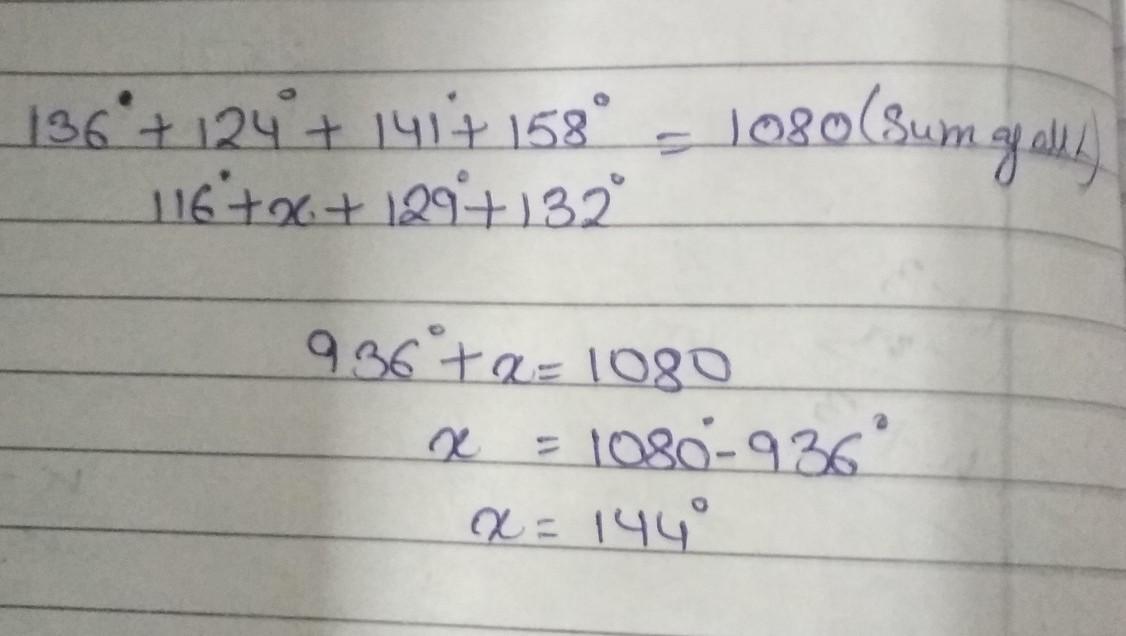 136° + 124° + 141° + 158° = 1080 (Sum of all
116° + x + 129° + 132°
936° + x = 1080
x = 1080° - 936°
x = 144°